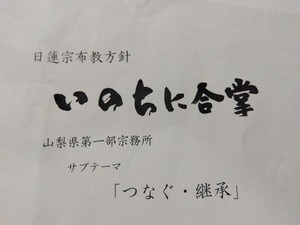 日蓮宗布教方針
いのちに合掌
山梨県第一部宗務所
サブテーマ
「つなぐ・継承」